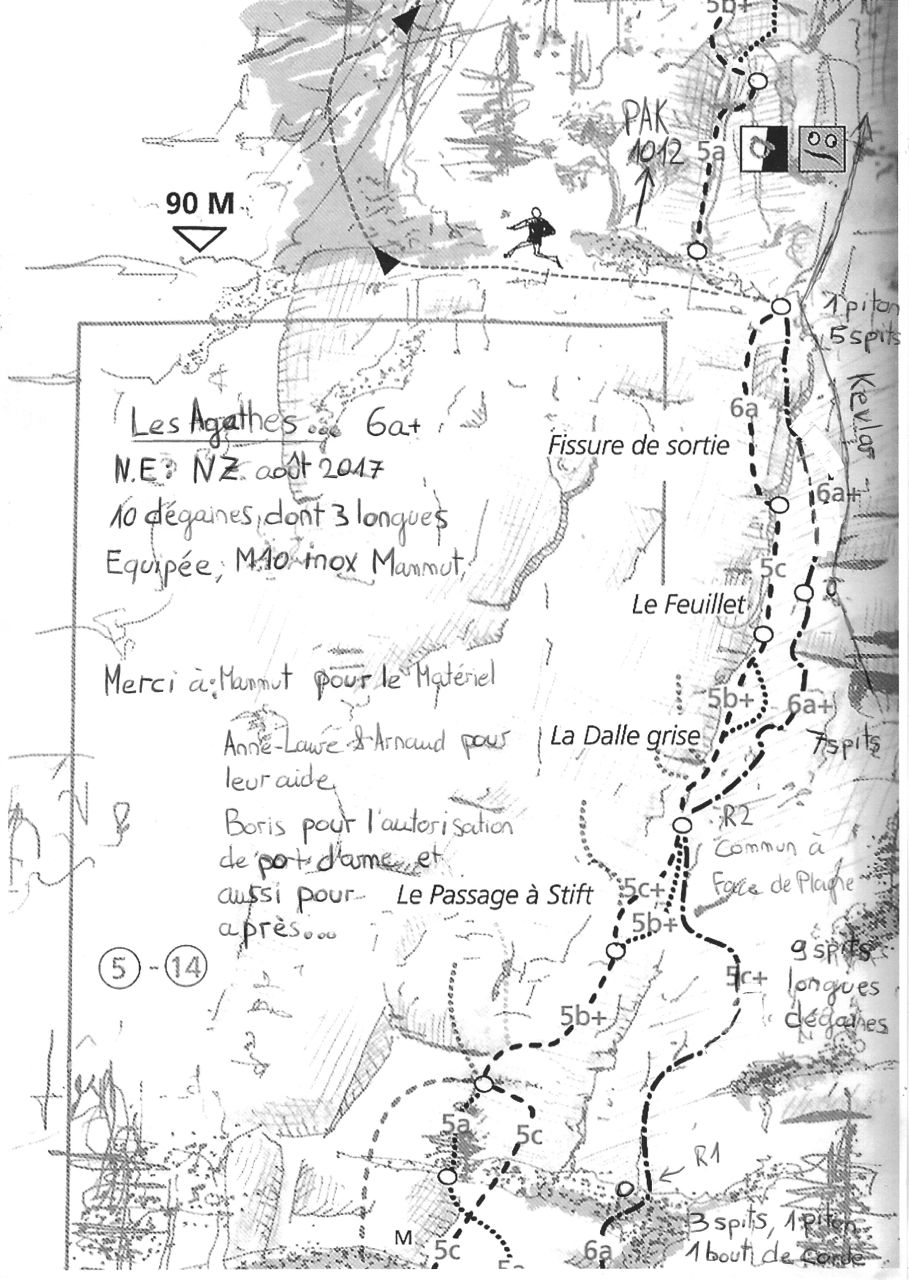 5b+
PAK
1012
5a
90 M
1 piton
5 spits
Kevlar
6a
Les Agathes... 6a+
Fissure de sortie
N.E: NZ août 2017
6a+
10 dégaines, dont 3 longues
Equipée, M10 inox Mammut,
5c
Le Feuillet
Merci à: Mammut pour le Matériel
5b+
6a+
Anne-Laure & Arnaud pour
leur aide
La Dalle grise
7 spits
Boris pour l'autorisation
de port d'arme et
aussi pour
après...
R2
Commun à
Face de Plagne
Le Passage à Stift
5c+
5b+
9 spits
longues
dégaines
5c+
5 - 14
5b+
5a
5c
R1
3 spits, 1 piton
1 bout de corde
M
5c
6a